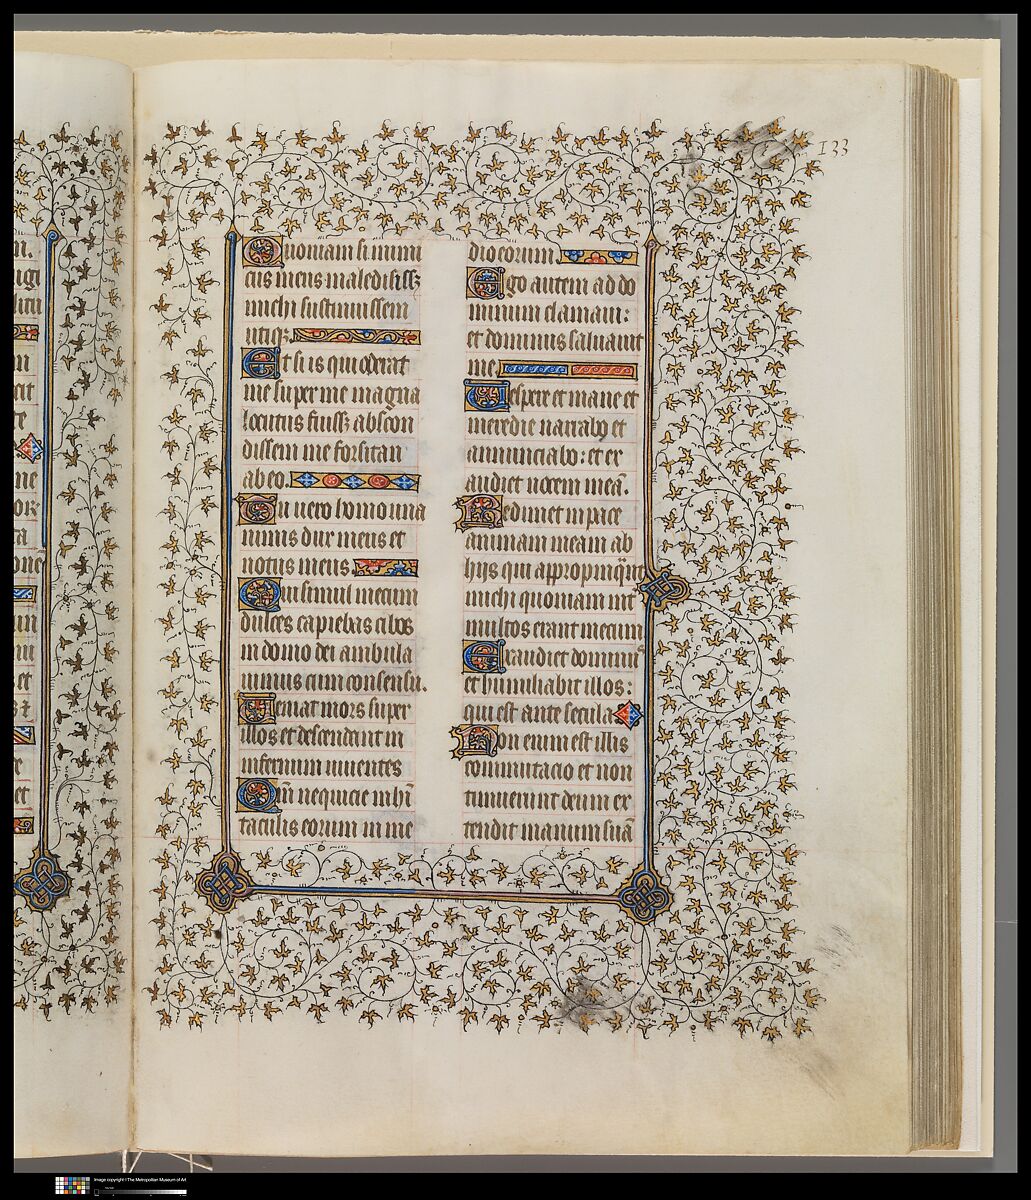 133
Quoniam si inimi
cus meus maledisissz
michi sustinuissem
utiqz
Et si is qui oderat
me super me magna
locutus fuissz abscon
dissem me forsitan
ab eo.
Tu vero homo una
nimis dux meus et
notus meus
Qui simul mecum
dulces capiebas cibos
in domo dei ambula
uimus cum consensu.
Veniat mors super
illos et descendant in
infernum uiuentes
Qm̄ nequicie in hi
taculis eorum in me
dio eorum
Ego autem ad do
minum clamaui:
et dominus saluauit
me
Vespere et mane et
meridie narrabo et
annunciabo: et ex
audiet uocem meā.
Redimet in pace
animam meam ab
hijs qui appropinquāt
michi quoniam int̄
multos erant mecum
Exaudiet dominus
et humiliabit illos:
qui est ante secula
Non enim est illis
commutacio et non
timuerunt deum ex
tendit manum suā
Image copyright The Metropolitan Museum of Art